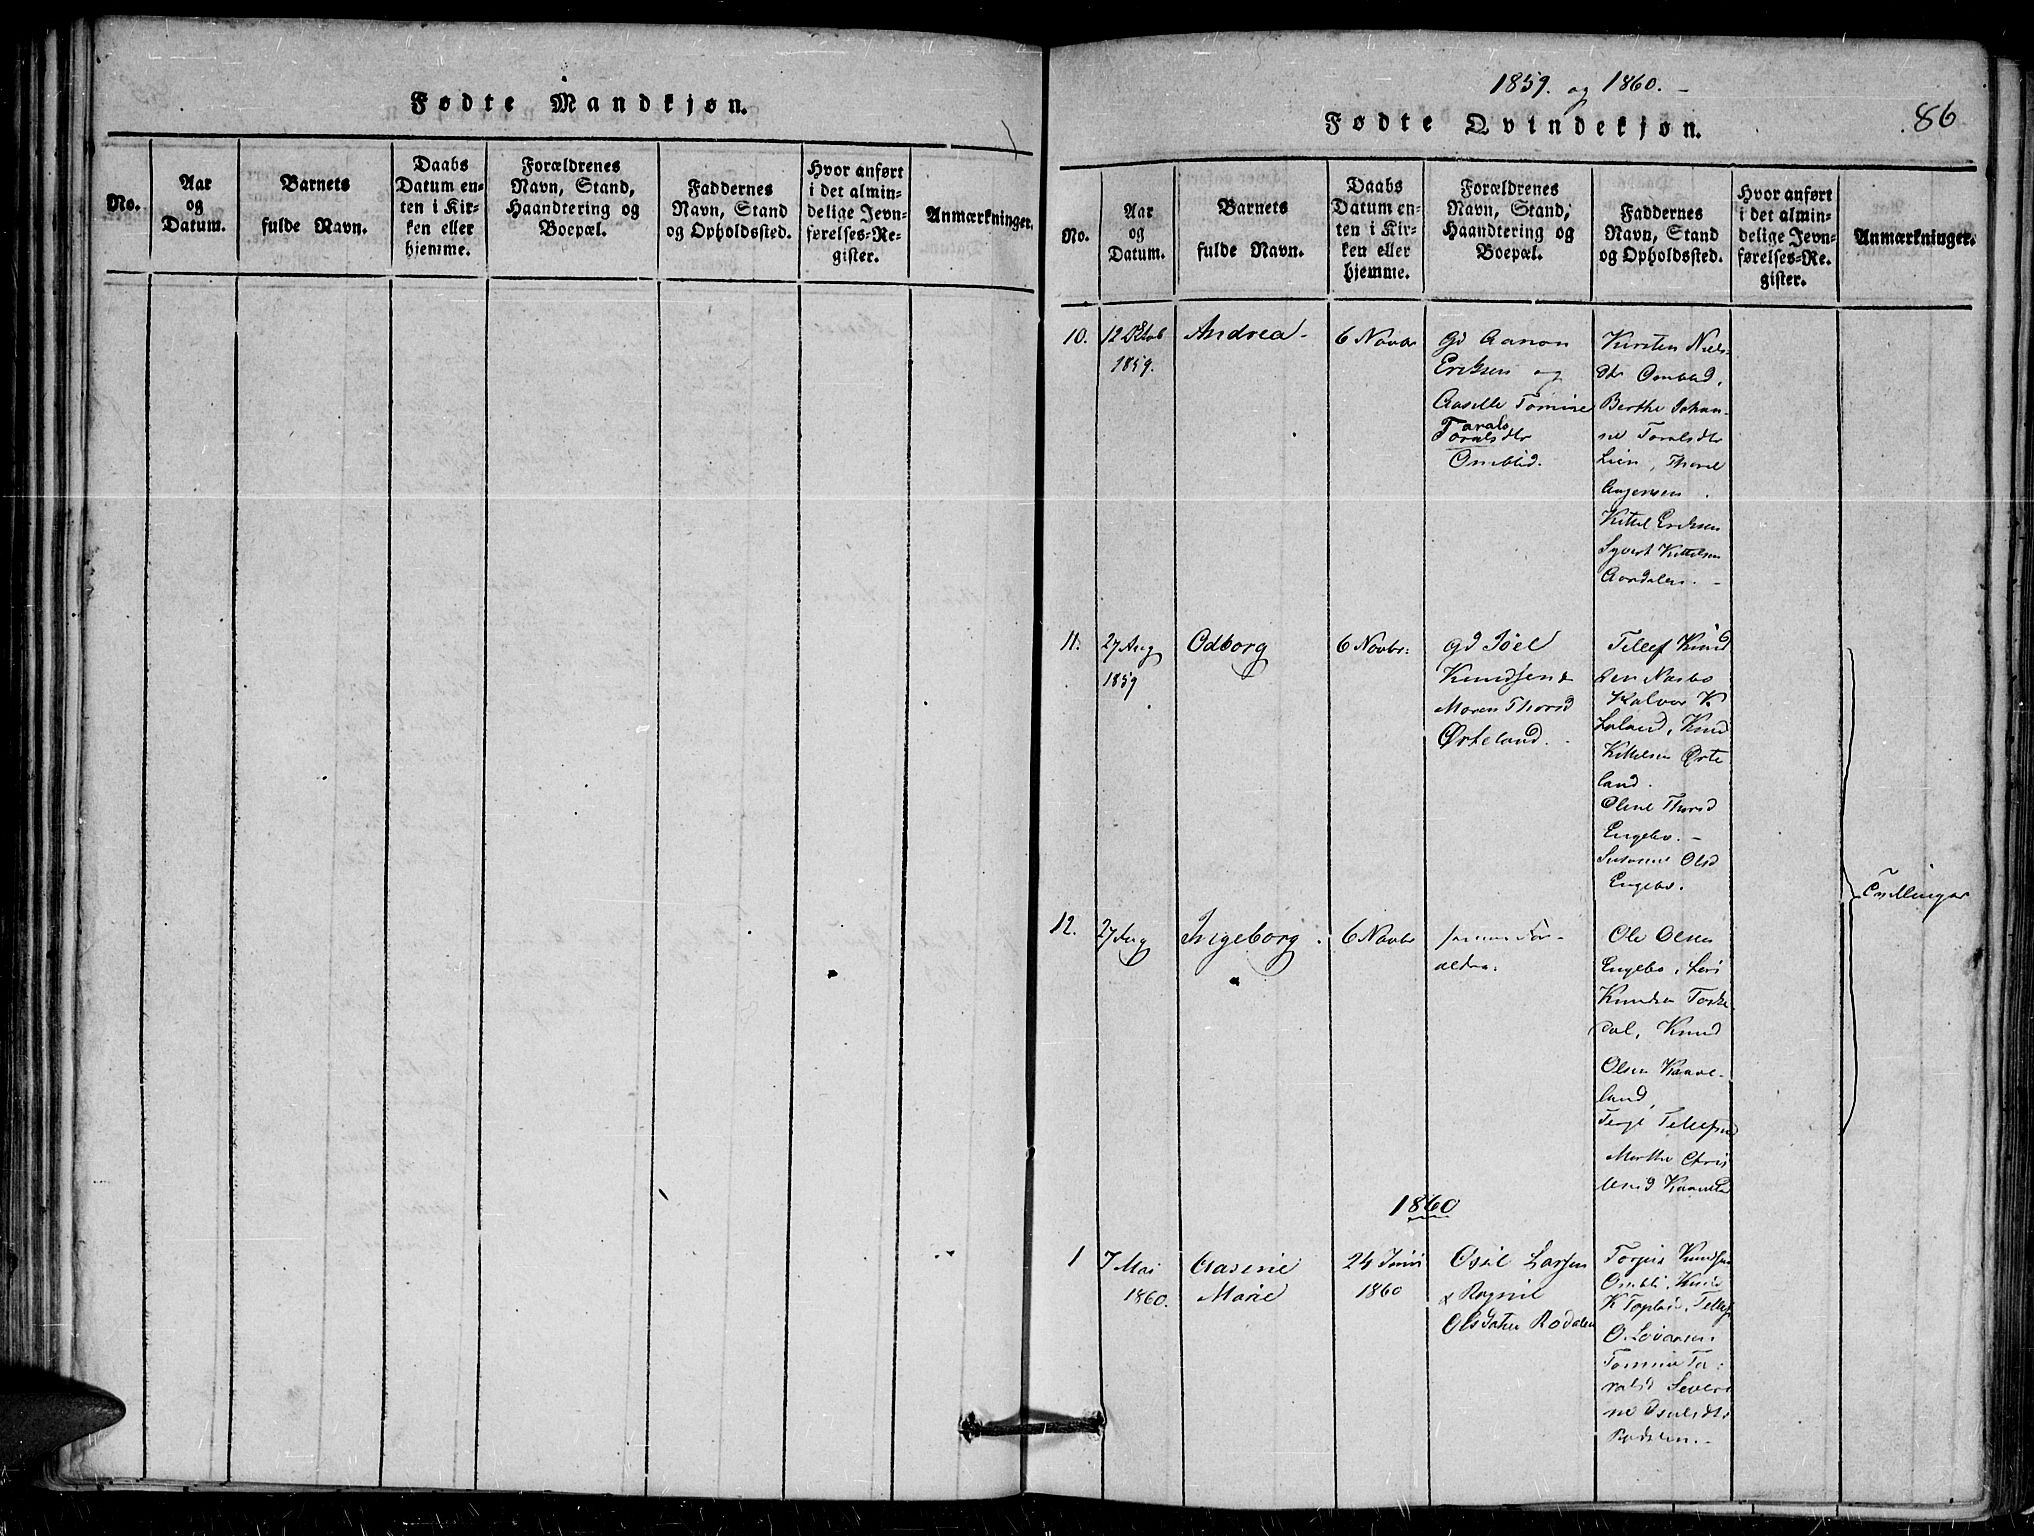 Fødte Mandkjøn.
No.
Aar
og
Datum.
Barnets
fulde Navn.
Daabs
Datum en-
ten i Kir-
ken eller
hjemme.
Forældrenes
Navn, Stand,
Haandtering og
Boepæl.
Faddernes
Navn, Stand
og Opholdssted.
Hvor anført
i det almin-
delige Jevn-
førelses-Re-
gister.
Anmærkninger.
1859. og 1860.
86
Fødte Qvindekjøn.
No.
Aar
og
Datum.
Barnets
fulde Navn.
Daabs
Datum en-
ten i Kir-
ken eller
hjemme.
Forældrenes
Navn, Stand,
Haandtering og
Boepæl.
Faddernes
Navn, Stand
og Opholdssted.
Hvor anført
i det almin-
delige Jevn-
førelses-Re-
gister.
Anmærkninger.
10.
12 Oktob
1859.
Andrea
6 Novbr
Gd Aanon
Eriksen og
Aaselle Tomine
Tarals
Toralsdtr
Omblid.
Kirsten Niels-
dtr Omblid,
Berthe Johan-
ne Toralsdtr
Lien, Thorel
Aagensen
Kittel Eriksen
Syvert Kittelsen
Aardalen.
11.
27 Aug
1859
Odborg
6 Novbr.
Gd Joel
Knudsen &
Maren Thorsd
Ørteland.
Tellef Knud
sen Næsbø
Halvor K
Laland, Knud
Kittelsen Ørte
land.
Oline Thorsd
Engebo.
Susanne Olsd
Engebo.
12.
27 Aug
Ingeborg
6 Novbr
samme For-
ældre.
Ole Olsen
Engebo, Lars
Knudsen Toske
dal, Knud
Olsen Kaave-
land,
Terje Tellefsen
Marthe Chris
Tvillinger
1860
1
7 Mai
1860.
Aasine
Marie
24 Juni
1860
Osul Larsen
& Ragnil
Olsdatter Rodalen
Torjus Knudsen
Ombli, Knud
K Topland, Tellef
O. Lovaasen
Tomine To-
ralsd Severi
ne Osulsdtr
Rodalen.